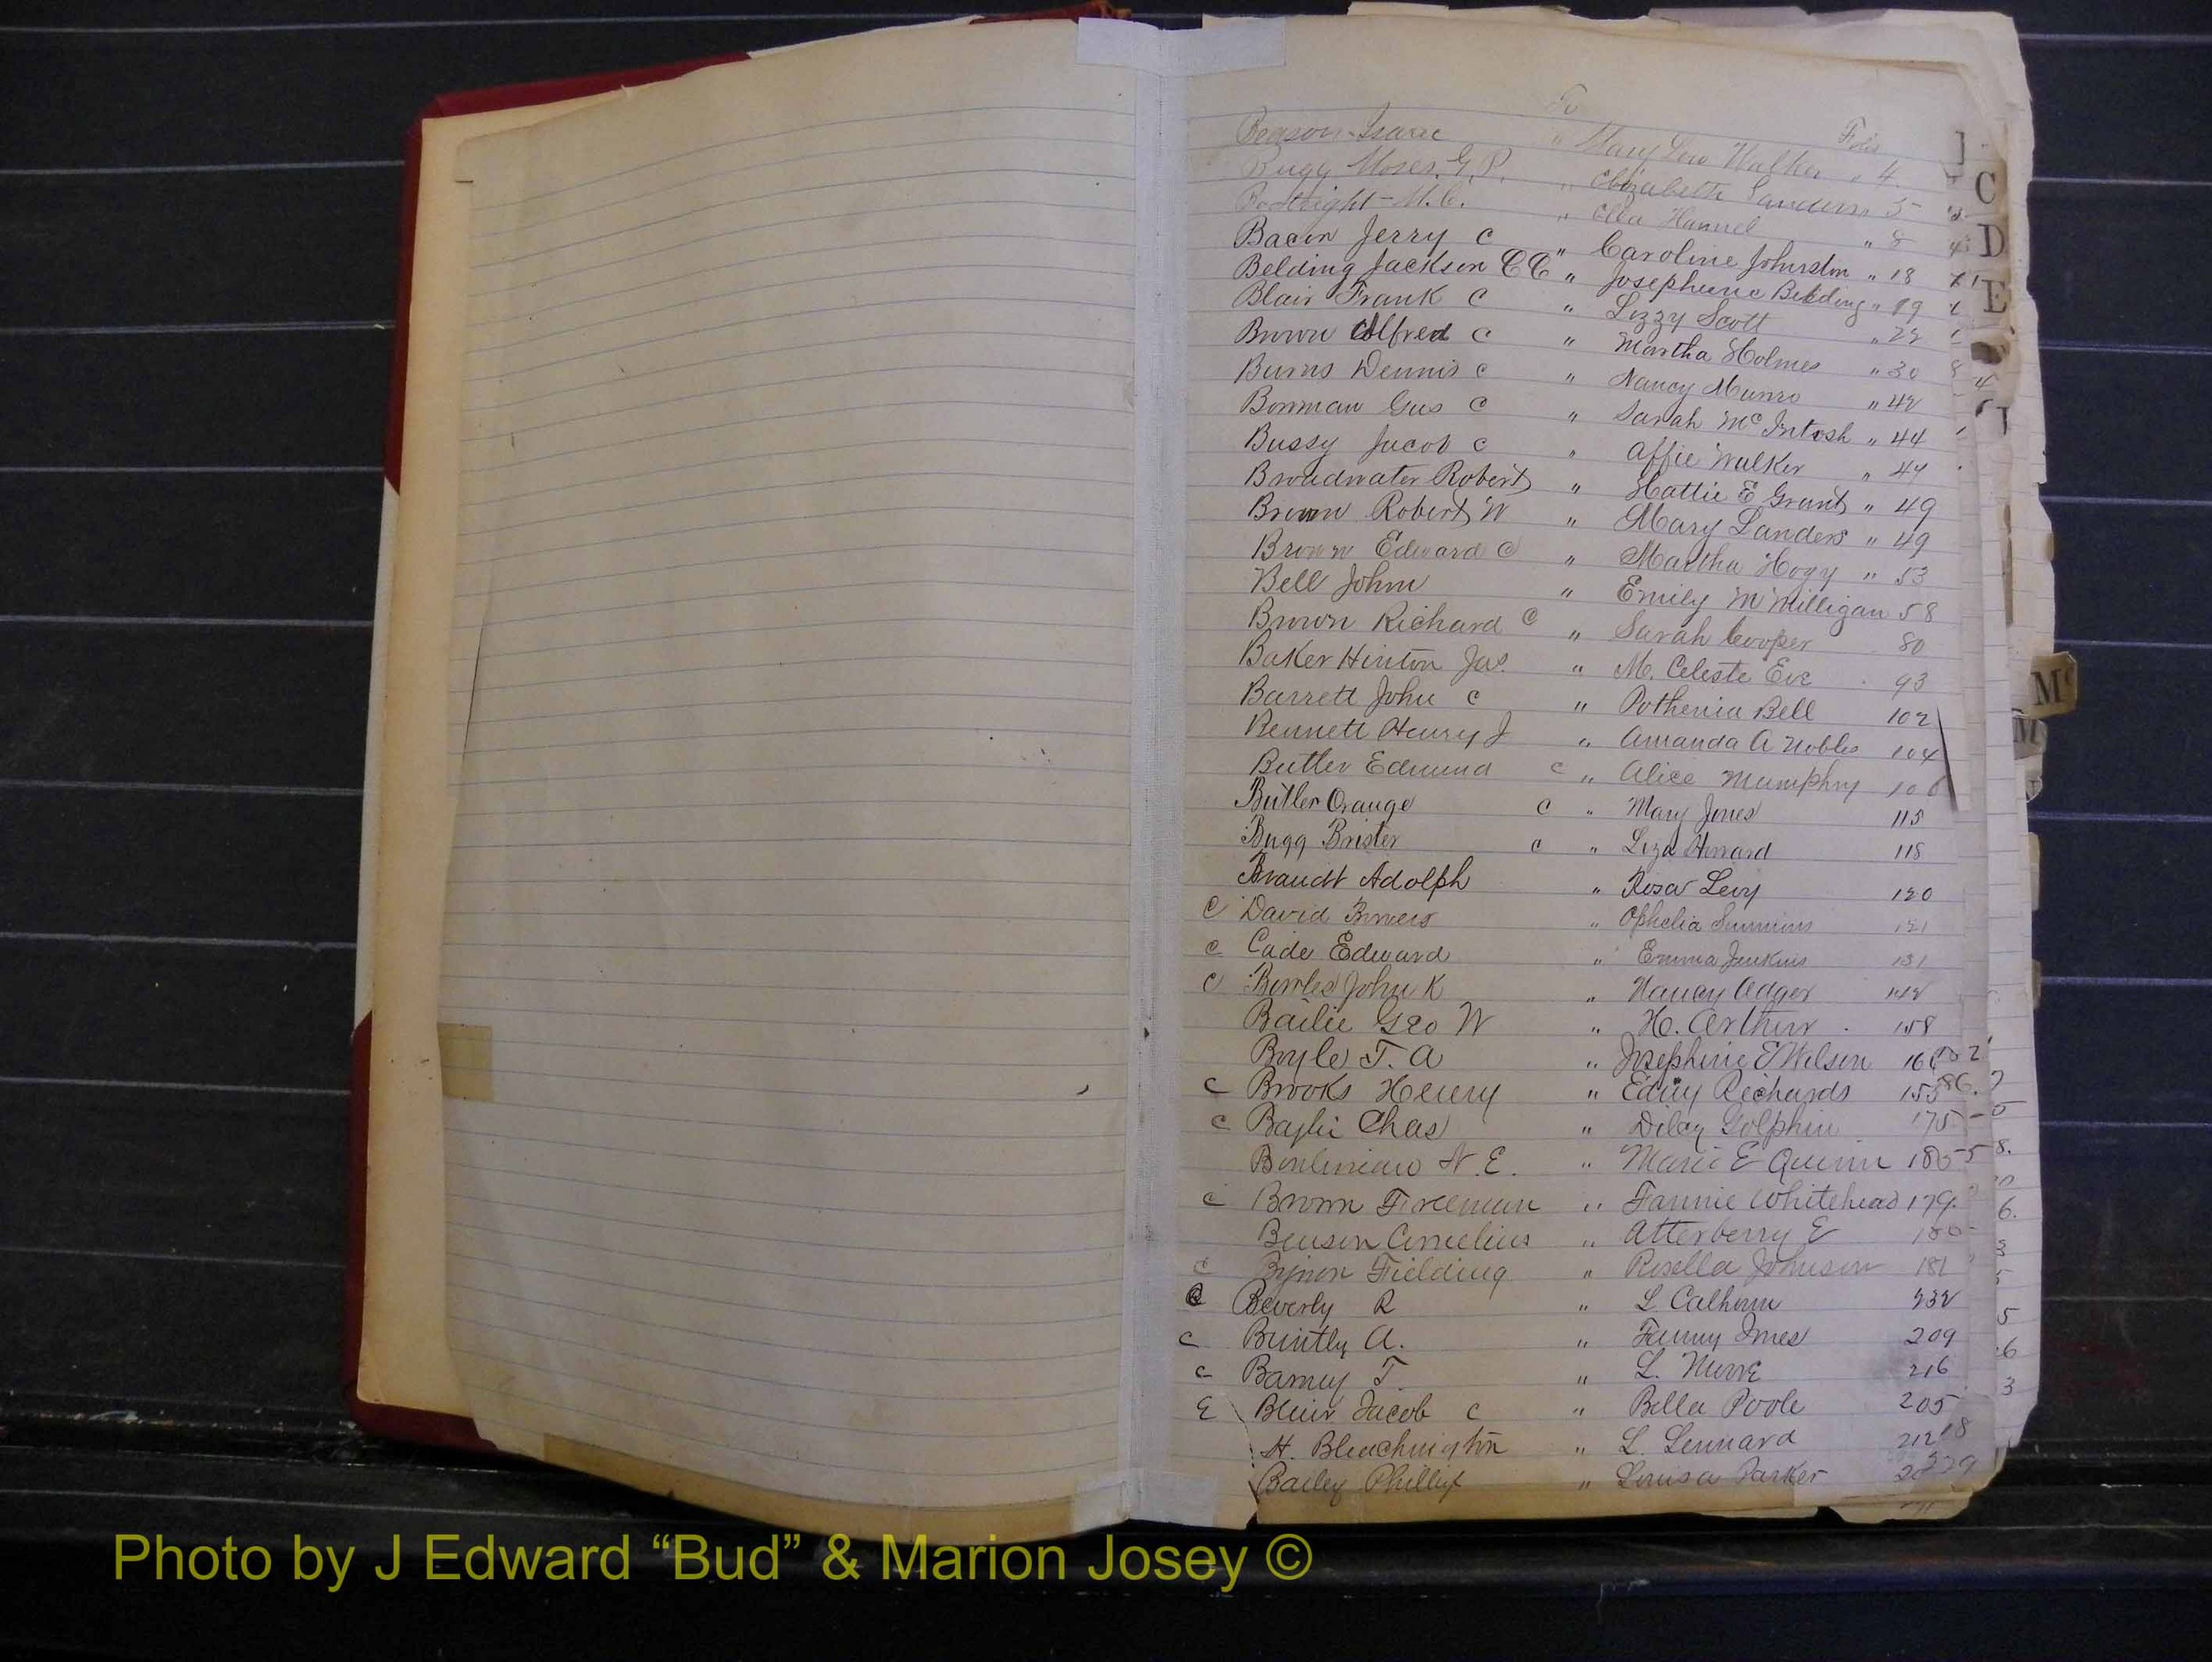 To Folio
Beason Isaac " Mary Lou Walker " 4
Bugg Moses. G. P. " Elizabeth Sanders " 5
Boatright - M. C. " Ella 8
Bacon Jerry C " Caroline Johnston " 18
Belding Jackson C C " Josephine Belding " 19
Blair Frank C " Lizzy Scott " 22
Brown Alfred C " Martha Holmes " 30
Burns Dennis C " Nancy Munro " 42
Bowman Gus C " Sarah McIntosh " 44
Bussy Jacob C " Affie Walker " 47
Broadwater Robert " Hattie E Grant " 49
Brown Robert W " Mary Landers " 49
Brown Edward C " Martha Hogy " 53
Bell John " Emily McMilligan 58
Brown Richard C " Sarah Cooper 80
Baker Hinton Jas. " M. Celeste Eve 93
Barrett John C " Pothenia Bell 102
Bennett Henry J " Amanda A Nobles 104
Butler Edmund C " Alice Mumphry 106
Butler Orange C " Mary Jones 115
Bugg Brister C " Liza 118
Brandt Adolph " Rosa Levy 120
C David Bowers " Ophelia Simmions 121
C Cade Edward " Emma Jenkins 131
C Bowles John K " Nancy Adger 142
Bailie Geo W " H. Arthur 158
Boyle T. A " Josephine E Wilson
C Brooks Henry " Richards 155
C Baylie Chas " Dilcy Golphin 175
N. E. " Marie E Quinn 180
C Brown Freeman " Fannie Whitehead 179
Benson Cornelius " Atterberry E 180
C Bynon Fielding " Rosella Johnson 181
C Beverly R " L. Calhoun 232
C Buntly A. " Fanny Jones 209
C Barney T. " L. Moore 216
E Blair Jacob C " Bella Poole 205
H. Bleachington " L. Lennard 212
Bailey Phillip " Louisa Parker
C
D
E
Mc
M
Photo by J Edward “Bud” & Marion Josey ©